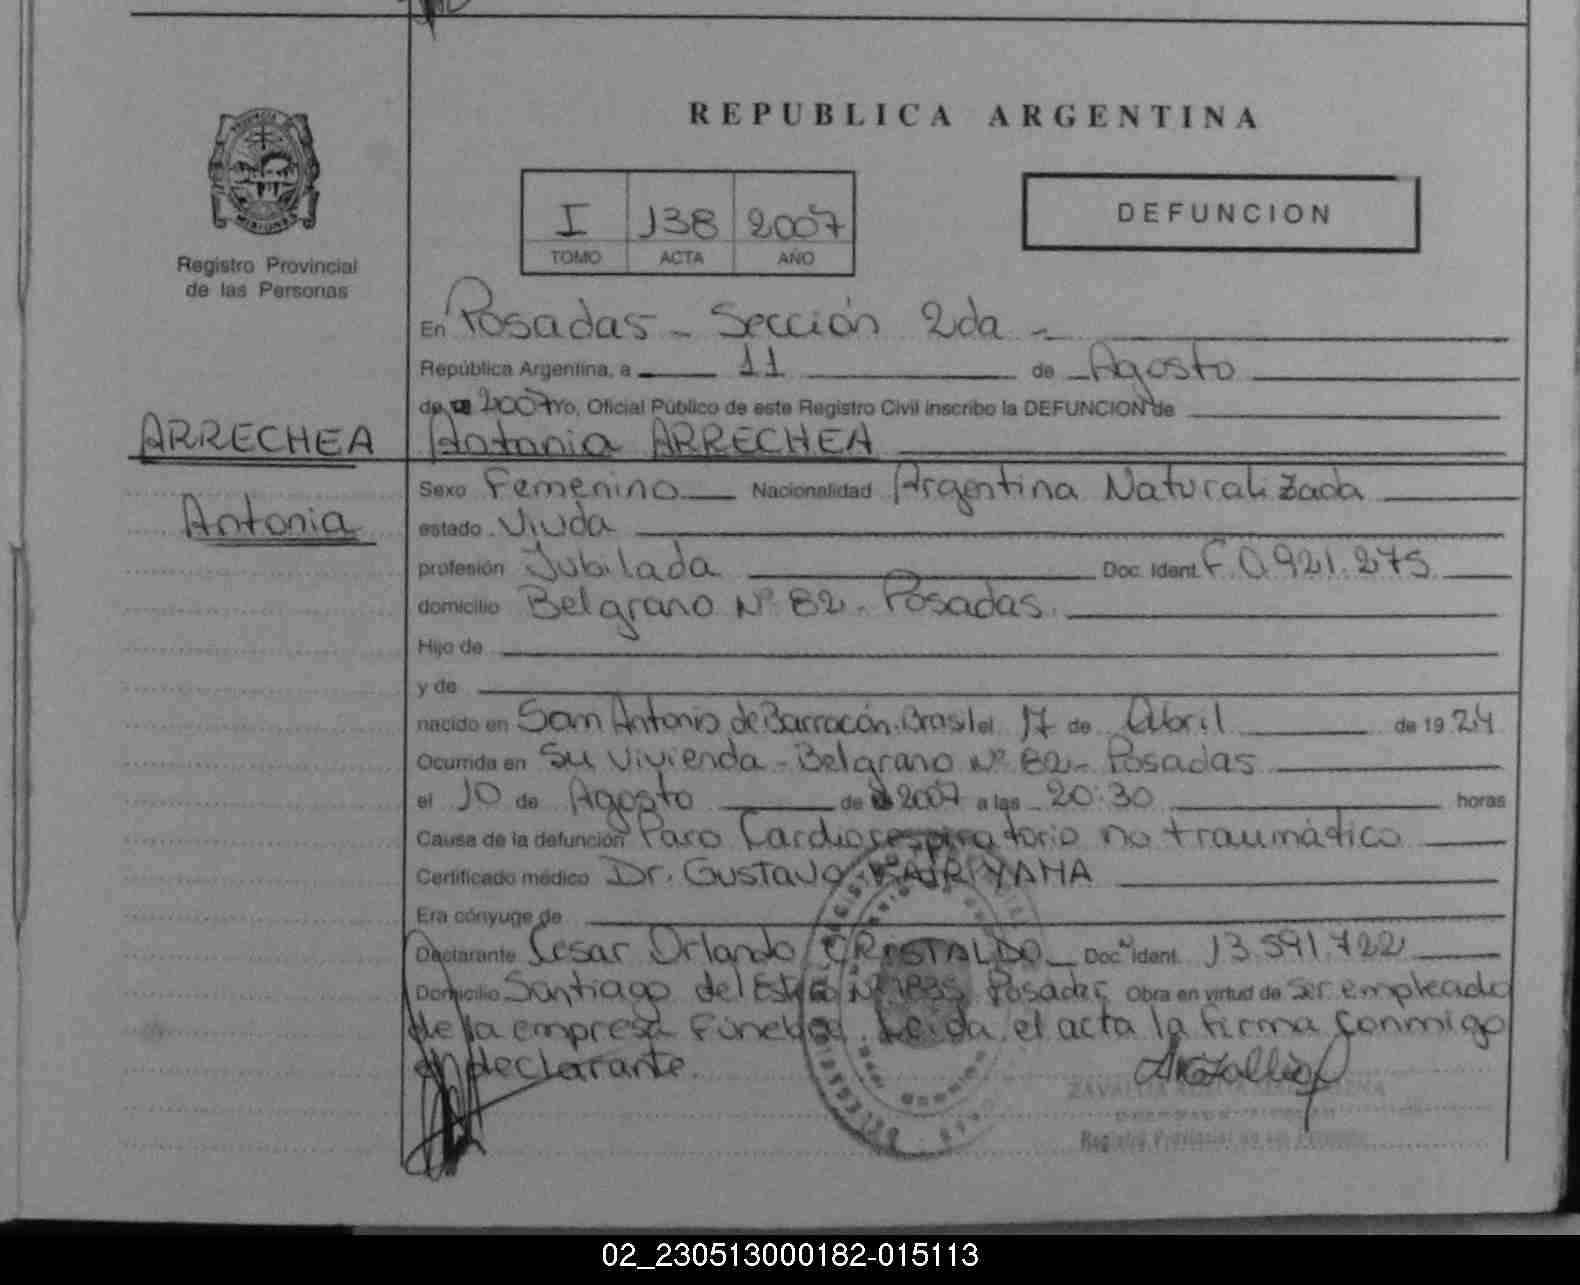 REPUBLICA ARGENTINA
PROVINCIA
MISIONES
Registro Provincial
de las Personas
I 138 2007
TOMO ACTA AÑO
DEFUNCION
En Posadas - Sección 2da -
República Argentina, a 11 de Agosto
de 2007 yo, Oficial Público de este Registro Civil inscribo la DEFUNCION de
ARRECHEA
Antonia ARRECHEA
Antonia
Sexo Femenino Nacionalidad Argentina Naturalizada
estado Viuda
profesión Jubilada Doc. Ident. F. 0.921.275
domicilio Belgrano Nº 82 - Posadas
Hijo de
y de
nacido en San Antonio de Barracón, Brasil el 17 de Abril de 1924
Ocurrida en Su Vivienda - Belgrano Nº 82 - Posadas
el 10 de Agosto de 2007 a las 20:30 horas
Causa de la defunción Paro Cardiorespiratorio no traumático
Certificado médico Dr. Gustavo
Era cónyuge de
Declarante Cesar Orlando CRISTALDO Doc. Ident. 13.591.722
Domicilio Santiago del Estero Nº 1835 Posadas Obra en virtud de Ser empleado
de la empresa Fúnebre. Leída el acta la firma conmigo
el declarante.
Registro Provincial de las Personas
02_230513000182-015113